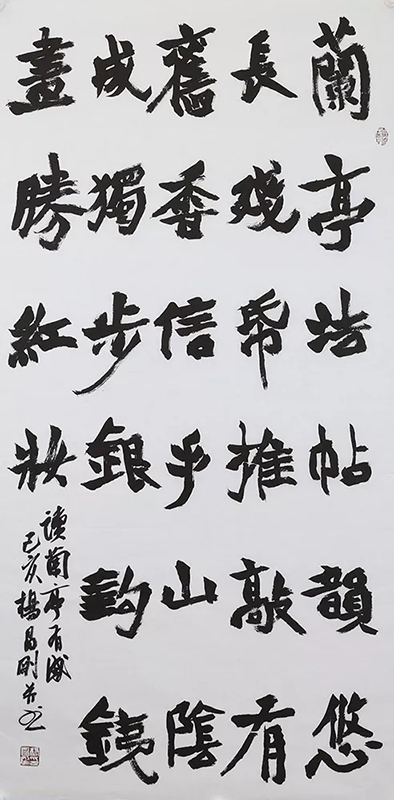 蘭亭法帖韻悠
長殘帋推敲有
舊香信手山陰
成獨步銀鈎銕
畫勝紅妝
讀蘭亭有感
己亥楊昌刚并书